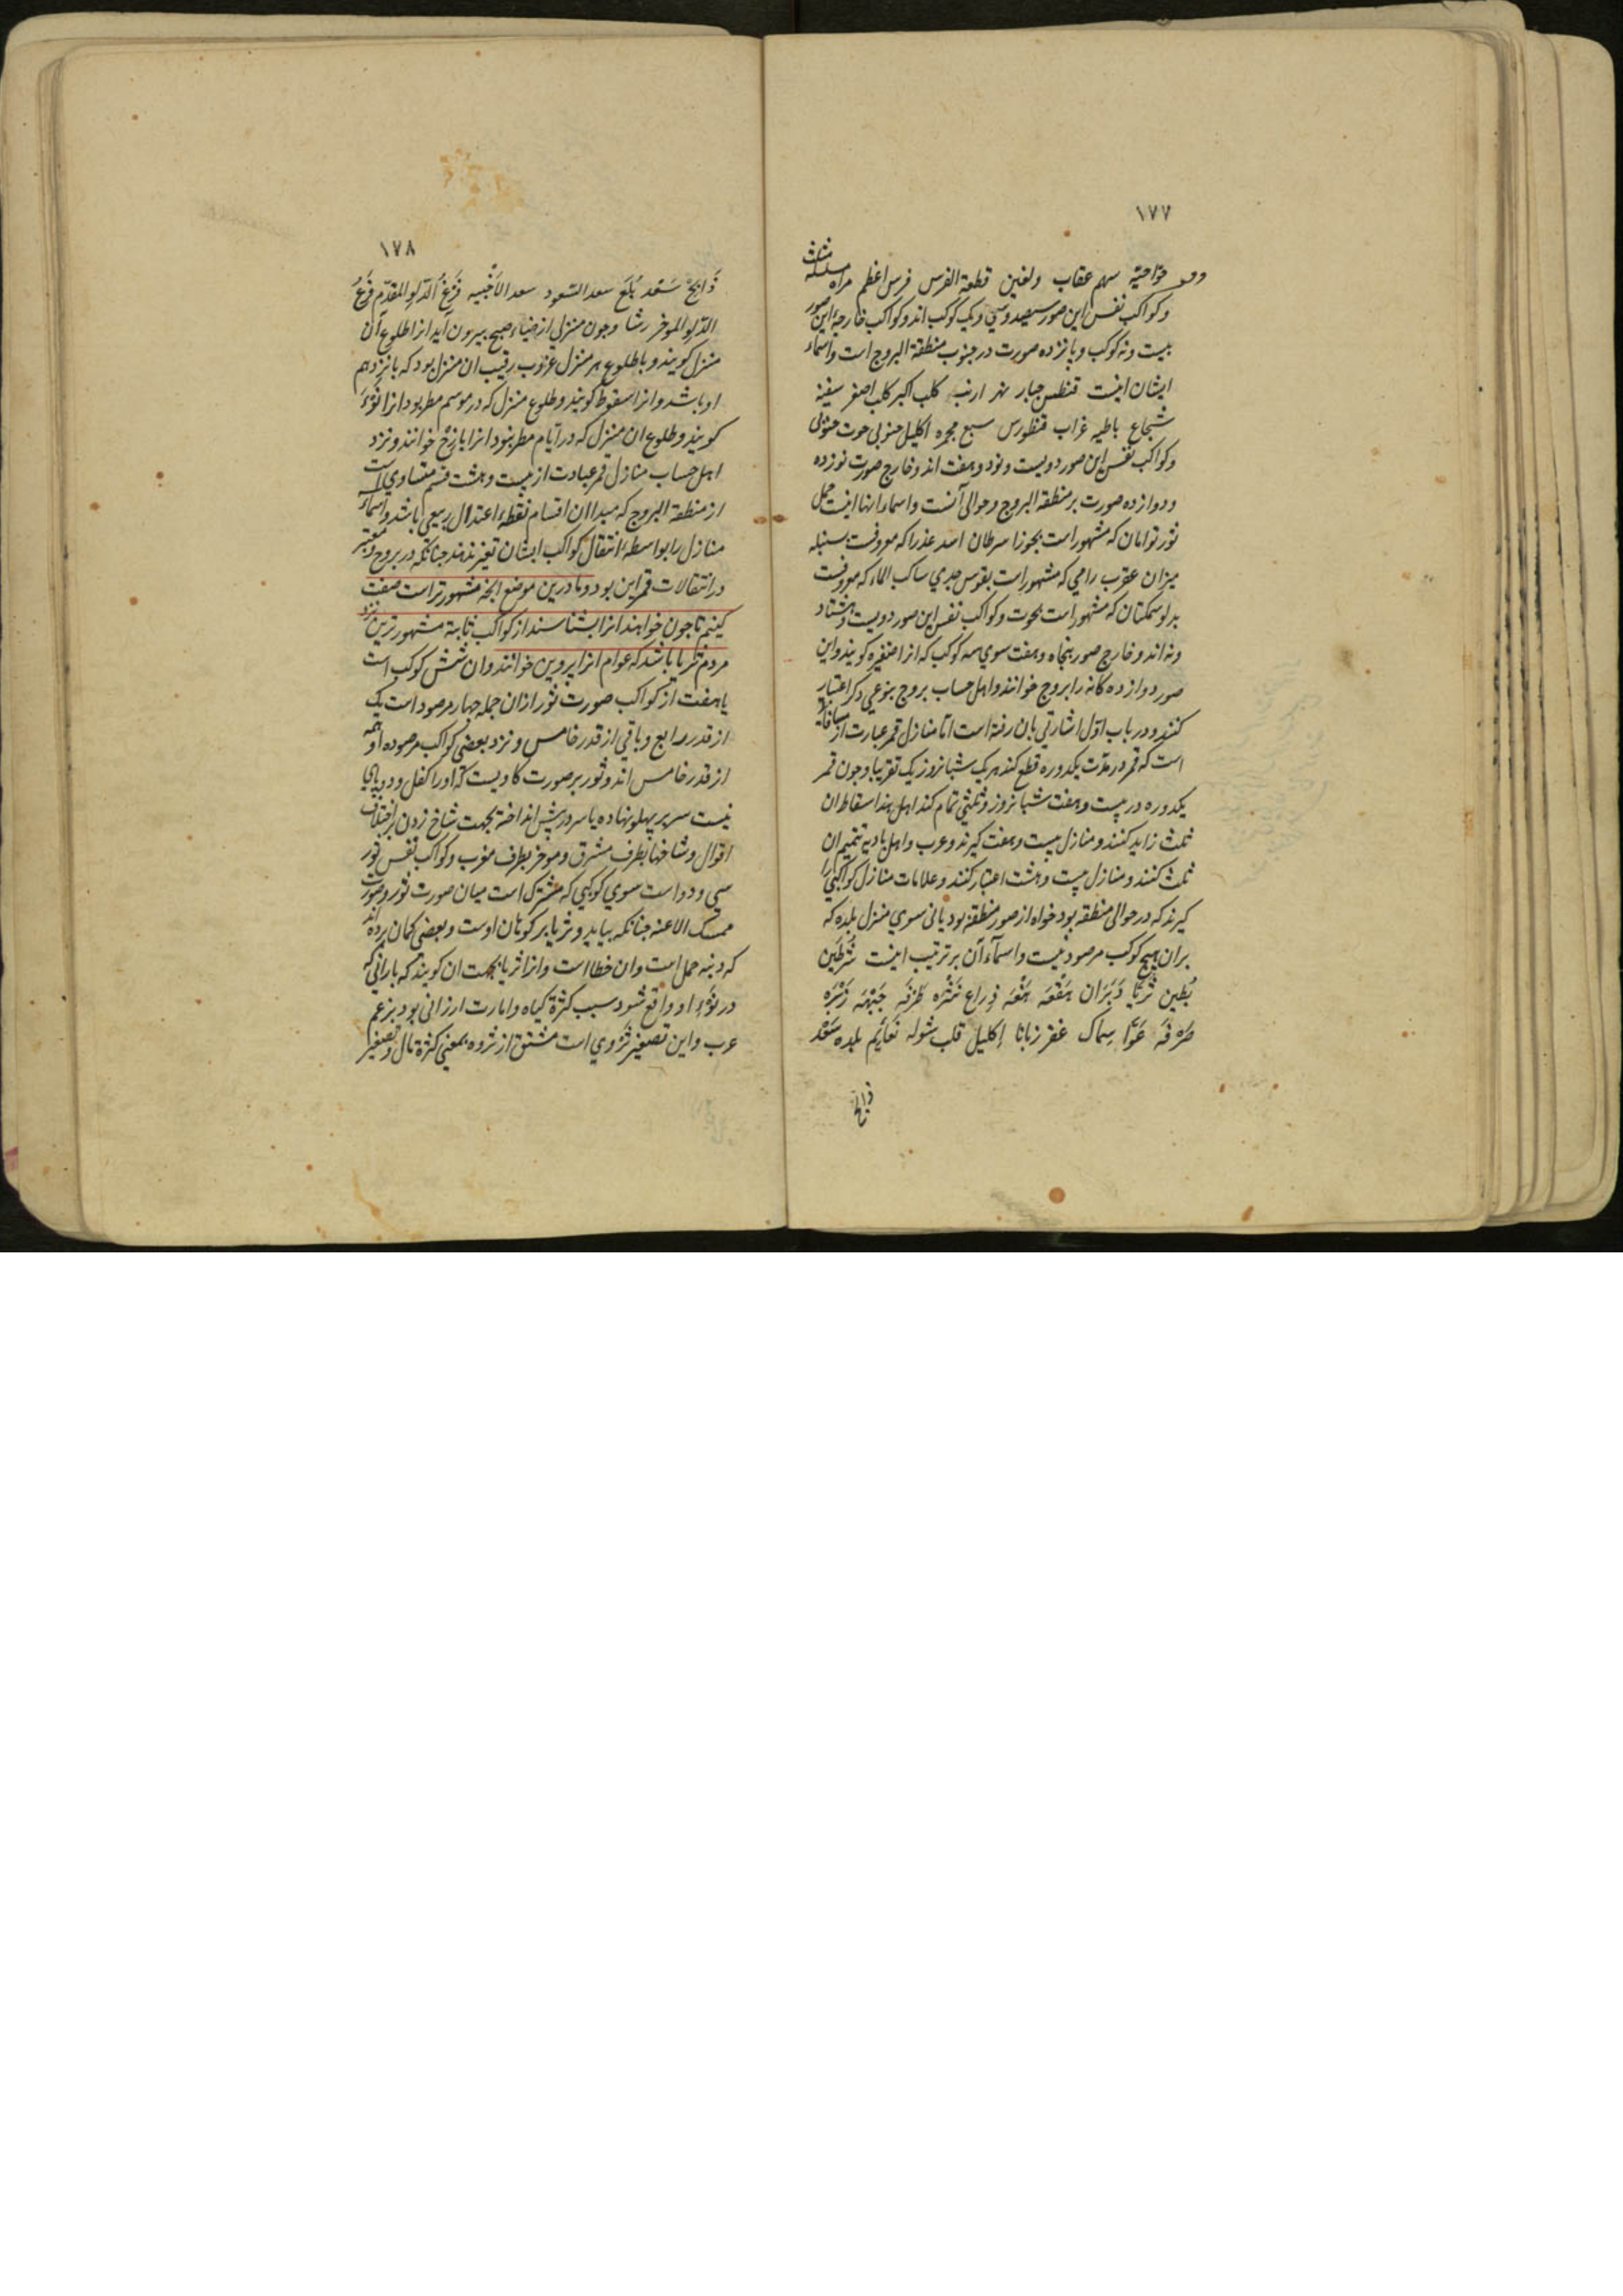 ۱۷۷
حوّا حیّة سهم عقاب دلفین قطعة الفرس فرس اعظم مراه مسلسله مثلث
و کواکب نفس این صور سیصد و سی و یک کوکب اند و کواکب خارجه این صور
بیست و نه کوکب و پانزده صورت در جنوب منطقة البروج است و اسماء
ایشان اینست قنطس جبار نهر ارنب کلب اکبر کلب اصغر سفینه
شجاع باطیه غراب قنطورس سبع مجمره اکلیل جنوبی حوت جنوبی
و کواکب نفس این صور دویست و نود و هفت اند و خارج صورت نوزده
و دوازده صورت بر منطقة البروج و حوالی آنست و اسماء انها اینست حمل
ثور توامان که مشهور است بجوزا سرطان اسد عذرا که معروفست بسنبله
میزان عقرب رامی که مشهور است بقوس جدی ساکب الماء که معروفست
بدلو سمکتان که مشهور است بحوت و کواکب نفس این صور دویست و هشتاد
و نه اند و خارج صور پنجاه و هفت سوی سه کوکب که انرا ضفیره کویند و این
صور دوازده کانه را بروج خوانند و اهل حساب بروج بنوعی دکر اعتبار
کنند و در باب اوّل اشارتی بان رفته است امّا منازل قمر عبارت از مسافاتی
است که قمر در مدّت یکدوره قطع کند هر یک شبانروز یک تقریبا و چون قمر
یکدوره در بیست و هفت شبانروز و ثلثی تمام کند اهل هند اسقاط ان
ثلث زاید کنند و منازل بیست و هفت کیرند و عرب و اهل بادیه تتمیم ان
ثلث کنند و منازل بیست و هشت اعتبار کنند و علامات منازل کواکبی را
کیرند که در حوالی منطقه بود خواه از صور منطقه بود یا نی سوی منزل بلده که
بران هیچ کوکب مرصود نیست و اسمآء آن بر ترتیب اینست شَرَطَین
بُطَین ثُریّا دَبَرَان هَقعَه هَنعَه ذِراع نَثره طَرفَه جَبهَه زُبرَه
صَرفَه عَوّا سِماک غفر زبانا اِکلیل قلب شوله نَعَایِم بلده سَعد
ذابح
۱۷۸
ذَابِح سَعد بُلَع سعد السّعود سعد الاَخبیه فَرغُ الدّلو المقدّم فَرغُ
الدّلو الموخر رشا و چون منزلی از ضیاء صبح بیرون آید انرا طلوع آن
منزل کویند و با طلوع هر منزل غروب رقیب ان منزل بود که پانزدهم
او باشد و انرا سقوط کویند و طلوع منزل که در موسم مطر بود انرا نَوْء
کویند و طلوع ان منزل که در ایّام مطر نبود انرا بارح خوانند و نزد
اهل حساب منازل قمر عبارت از بیست و هشت قسم متساوی است
از منطقة البروج که مبدا ان اقسام نقطهٔ اعتدال ربیعی باشد و اسماء
منازل را بواسطهٔ انتقال کواکب ایشان تغیر ندهند چنانکه در بروج و معتبر
در انتقالات قمر این بود و ما درین موضع انچه مشهورتر است صفت
کنیم تا چون خواهند انرا بشناسند از کواکب ثابته مشهورترین نزد
مردم ثریا باشد که عوام انرا پروین خوانند و ان شش کوکب است
یا هفت از کواکب صورت ثور ازان جمله چهار مرصود است یک
از قدر رابع و باقی از قدر خامس و نزد بعضی کواکب مرصوده او همه
از قدر خامس اند و ثور بر صورت کاویست که او را کفل و دو پای
نیست سر بر پهلو نهاده یا سر در پیش انداخته بجهت شاخ زدن بر اختلاف
اقوال و شاخها بطرف مشرق و موخر بطرف مغرب و کواکب نفس ثور
سی و دو است سوی کوکبی که مشترک است میان صورت ثور و صورت
ممسک الاعنه چنانکه بیاید و ثریا بر کوهان اوست و بعضی کمان برده اند
که دنبه حمل است و ان خطا است و انرا ثریا بجهت ان کویند که بارانی که
در نَوْءِ او واقع شود سبب کثرة کیاه و امارت ارزانی بود بزعم
عرب و این تصغیر ثروی است مشتق از ثروه بمعنی کثرة مال و تصغیر